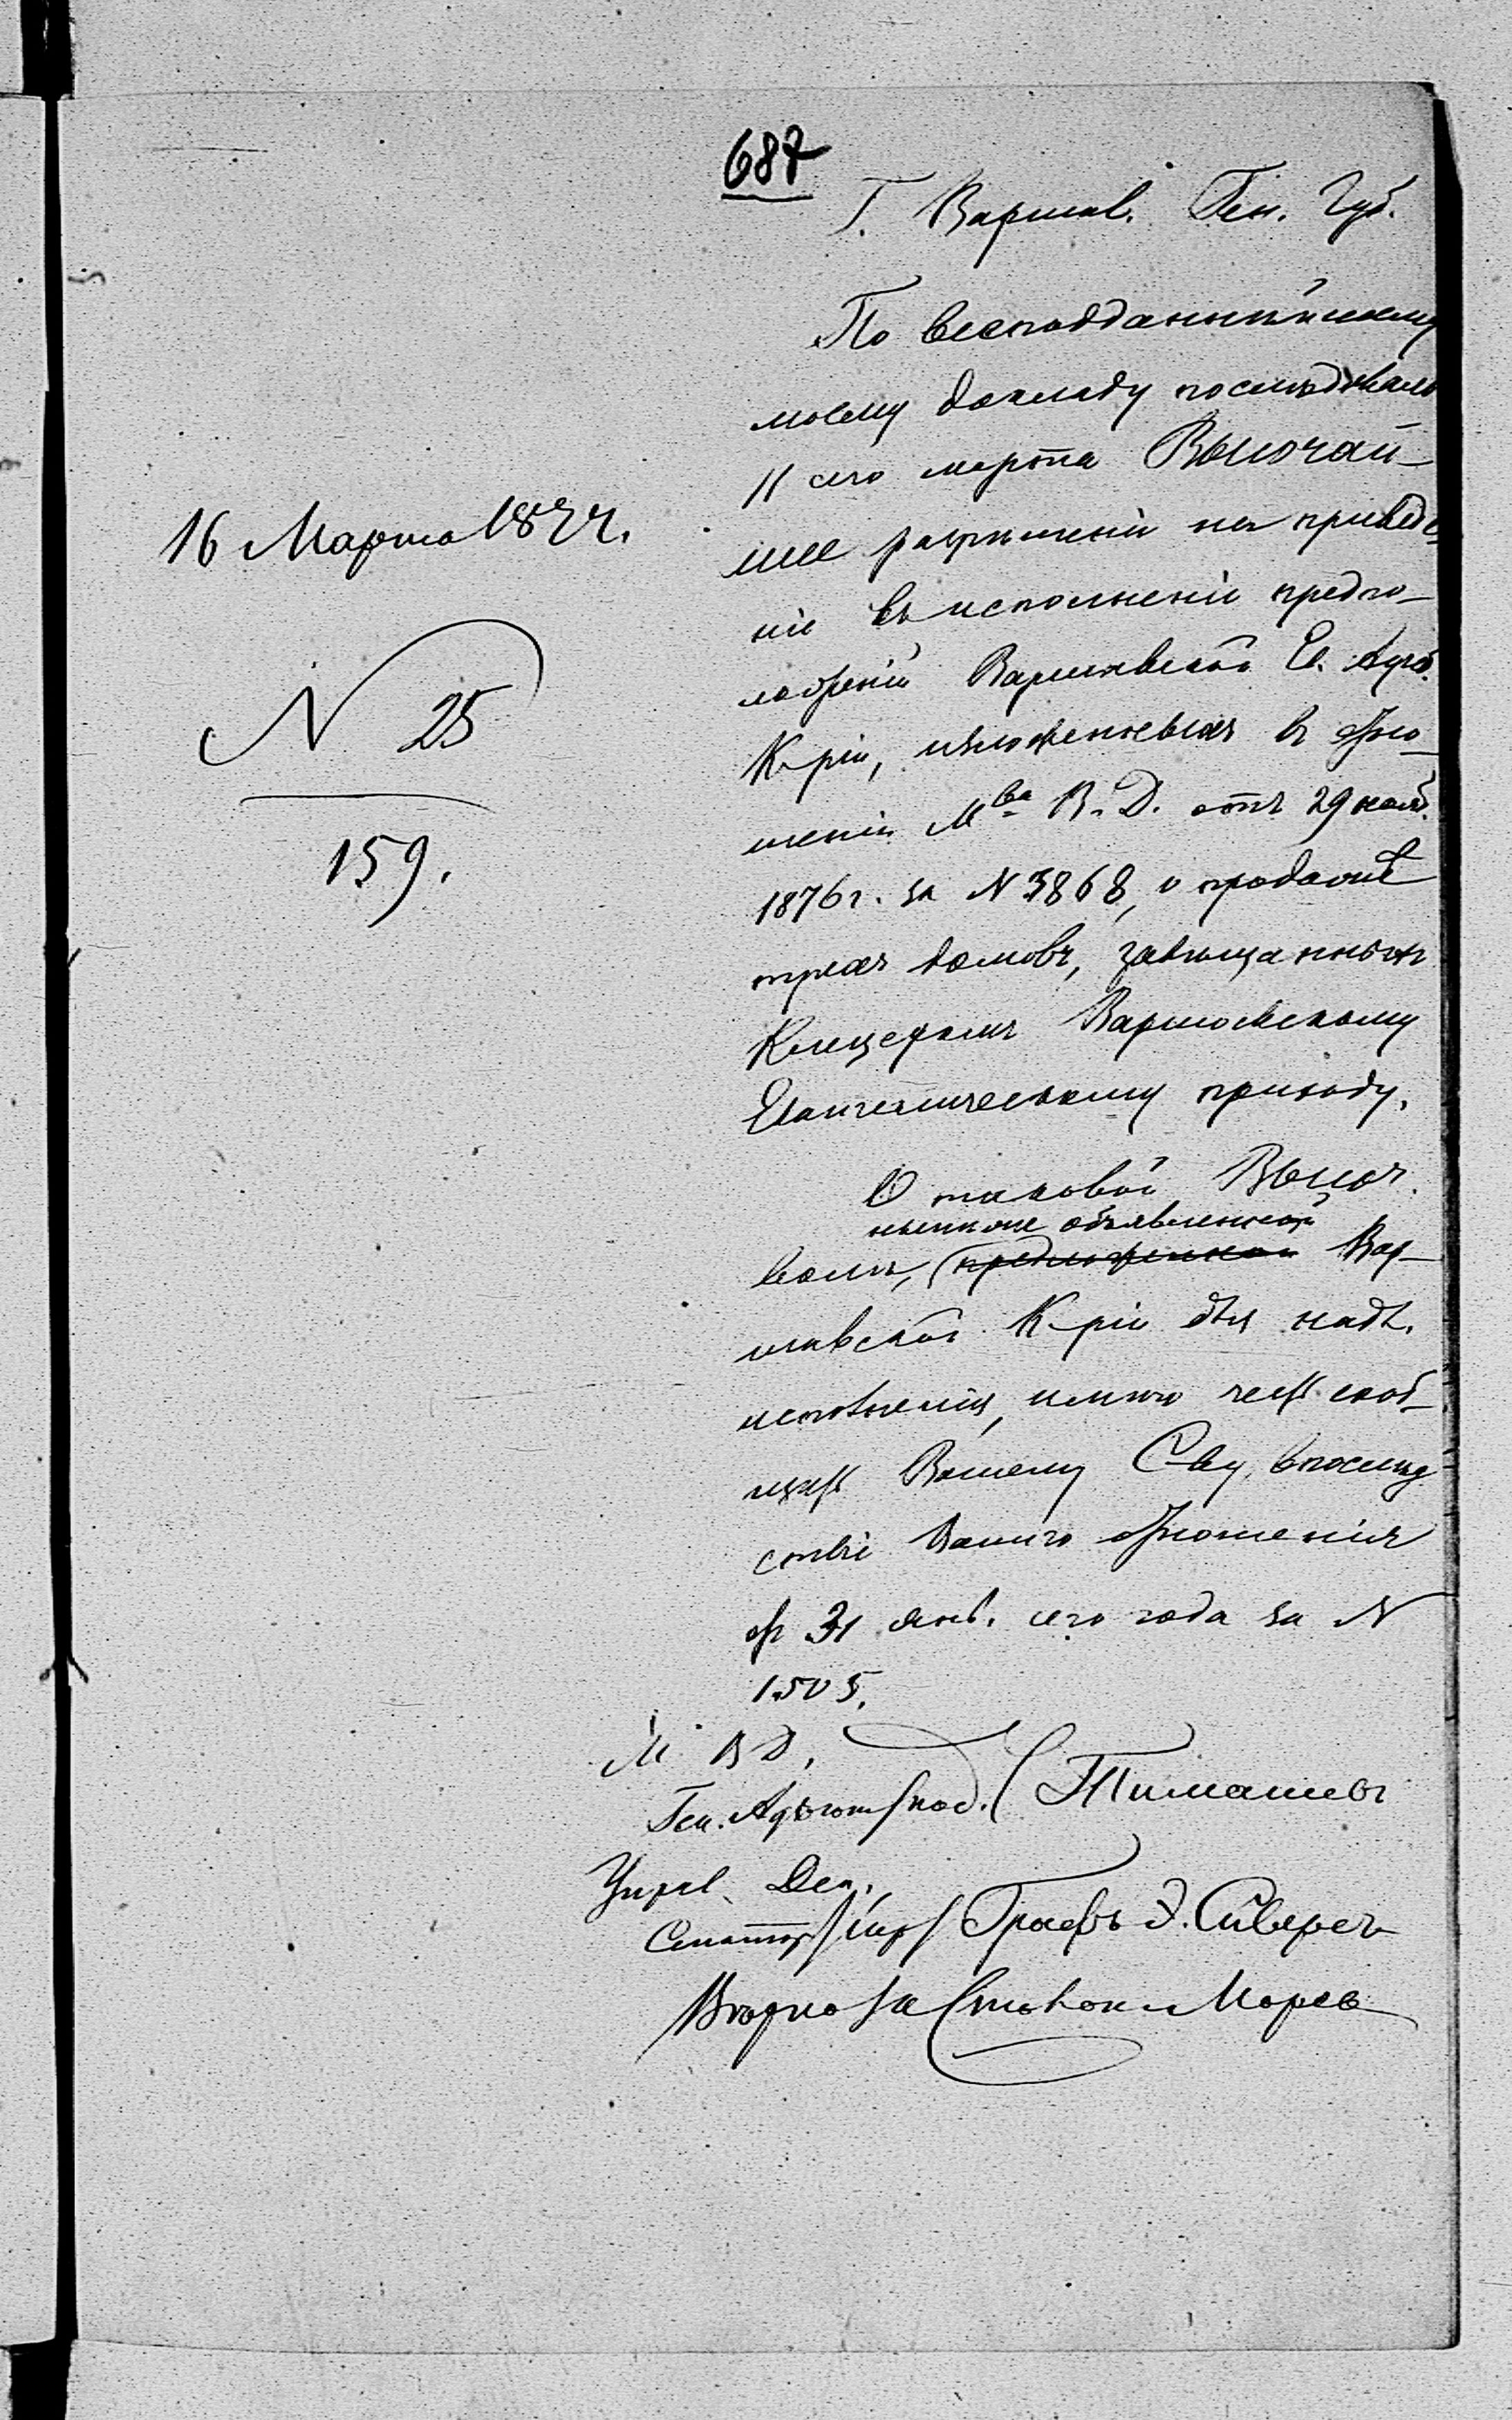 687
Г. Варшав. Ген. Губ.
По всеподданнѣйшему
моему докладу послѣдовало
11 сего марта Высочай-
шее разрѣшеніе на приведе-
ніе въ исполненіе предпо-
ложеній Варшавской Ев. Аугсб.
К-ріи, изложенныхъ въ отно-
шеніи М-ва В. Д. отъ 29 нояб.
1876 г. за N 3868, о продажѣ
трехъ домовъ, завѣщанныхъ
Варшавскому
Евангелическому приходу.
О таковой Высоч.
нынѣ же объявленной
волѣ, предложенной Вар-
шавской К-ріи для надл.
исполненія, имѣю честь сооб-
щить Вашему С-ву, впослѣд-
ствіе Вашего отношенія
отъ 31 янв. сего года за N
1505.
М В Д,
Ген. Адъютантъ /под./ Тимашевъ
Управ. Деп.
Сенаторъ /скр/ Графъ Э. Сиверсъ
Вѣрно За Столон. Морев
16 Марта 1877.
N 25
159.